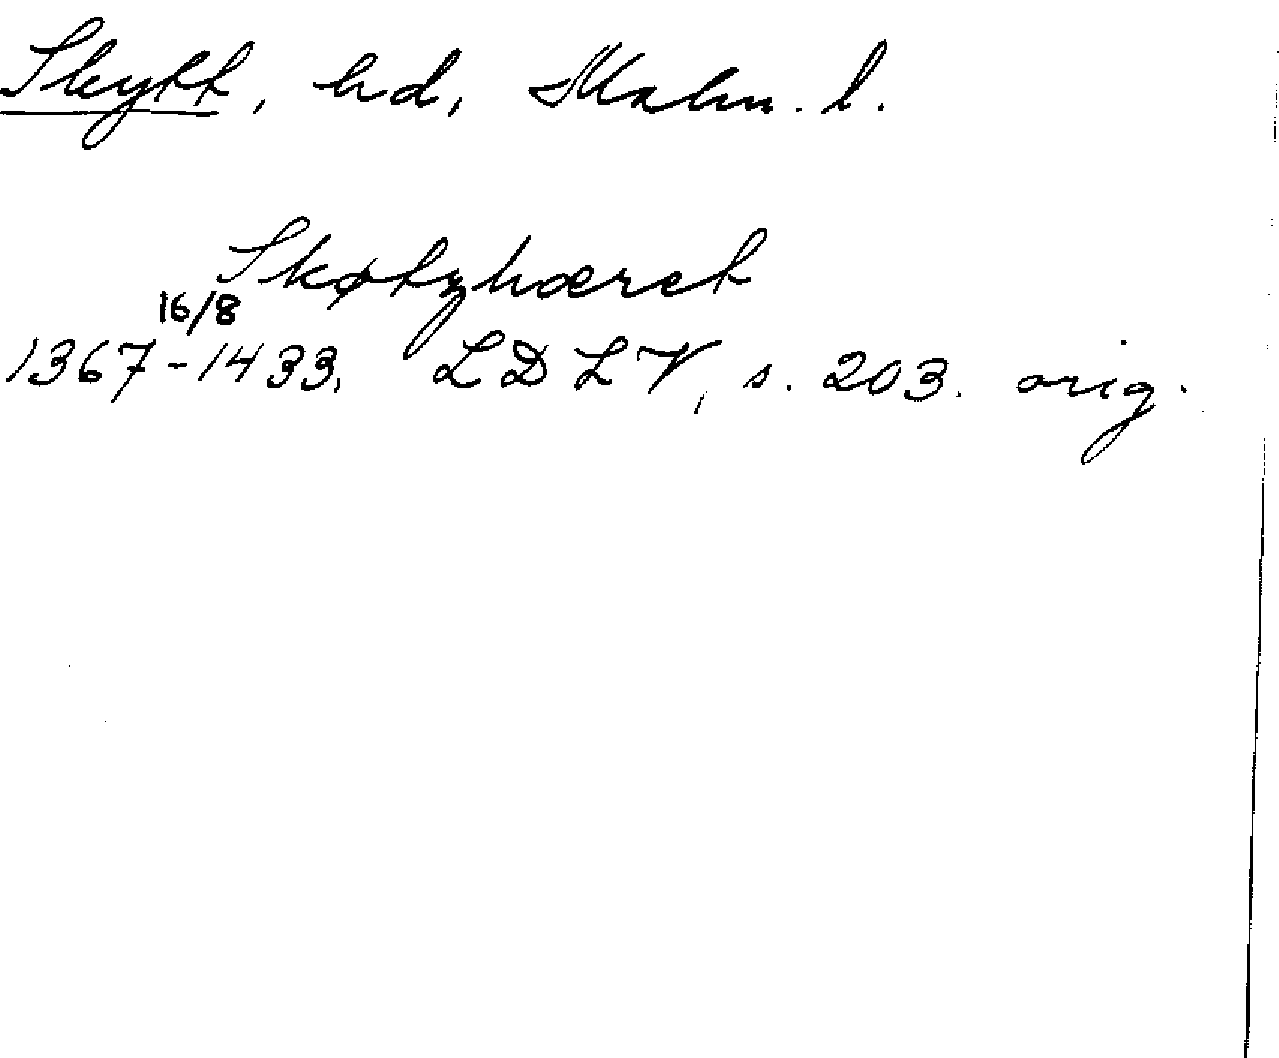 Skytt, hd, Malm. l.
Skøtzhæret
16/8
1367-1433. LDLV, s. 203. orig.